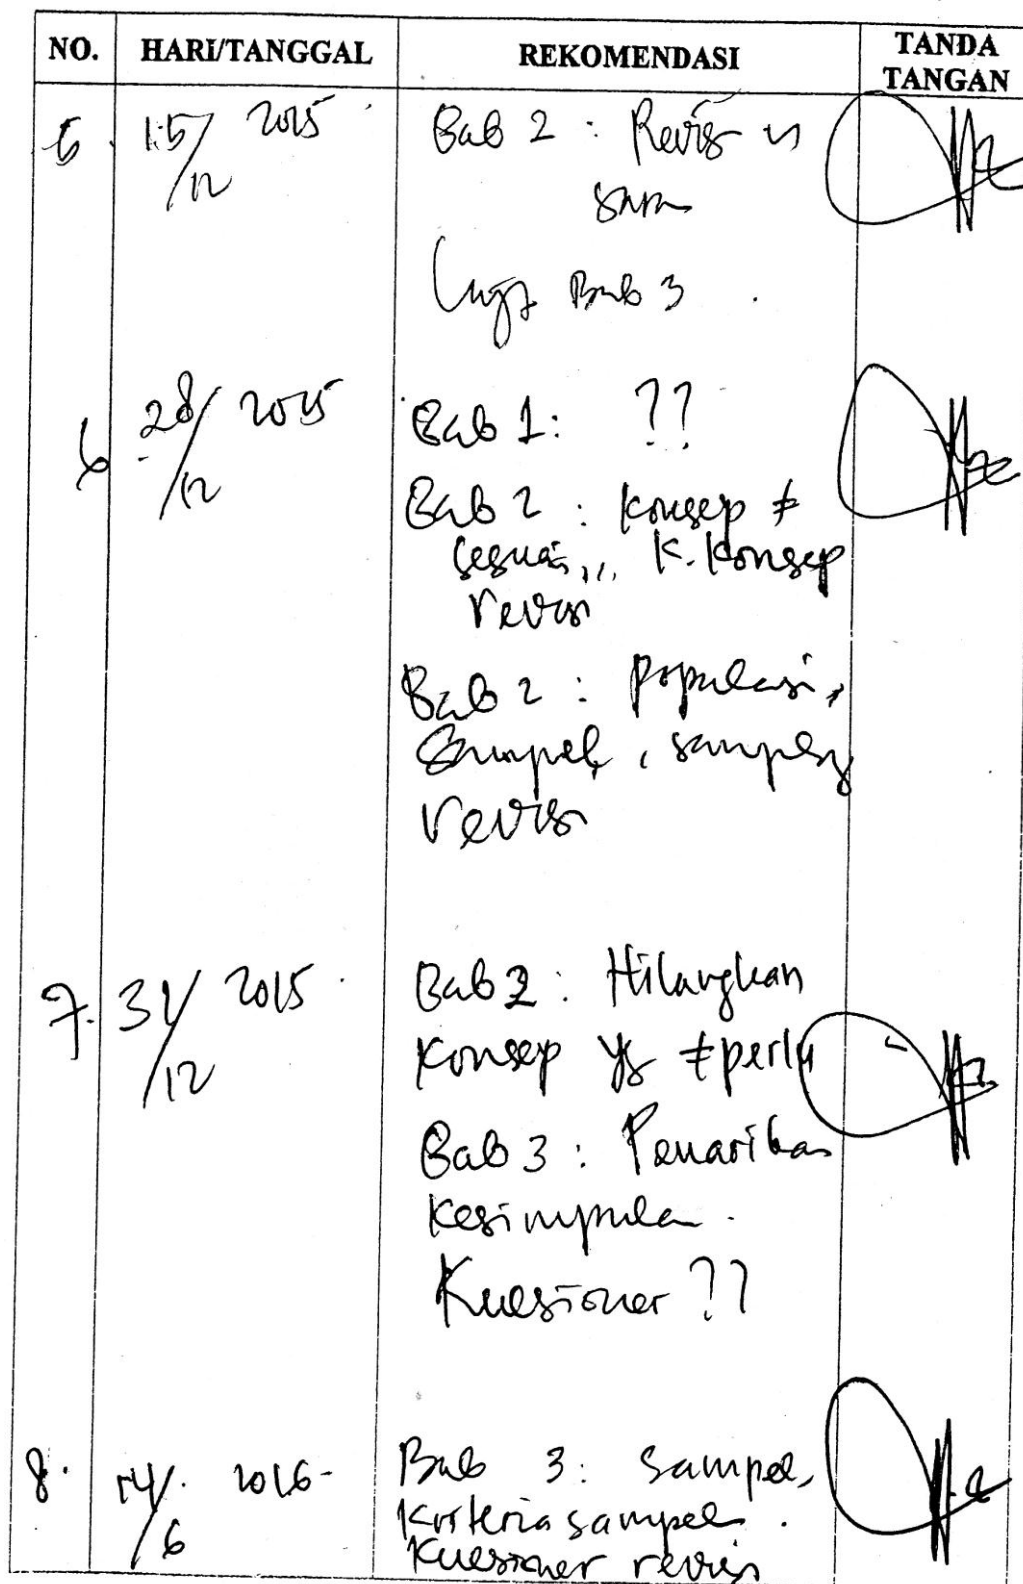 NO. HARI/TANGGAL REKOMENDASI TANDA TANGAN
5. 15/12 2015 Bab 2 : Revisi
saran
Bab 3
6 28/12 2015 Bab 1: ??
Bab 2 : Konsep ≠
sesuai,,, K. Konsep
revisi
Bab 2 : Populasi,
Sampel, sampling
revisi
7. 31/12 2015 Bab 2 : Hilangkan
Konsep yg ≠ perlu
Bab 3 : Penarikan
Kesimpulan.
Kuesioner ??
8. 14/6 2016 Bab 3: Sampel,
Kriteria sampel.
Kuesioner revisi